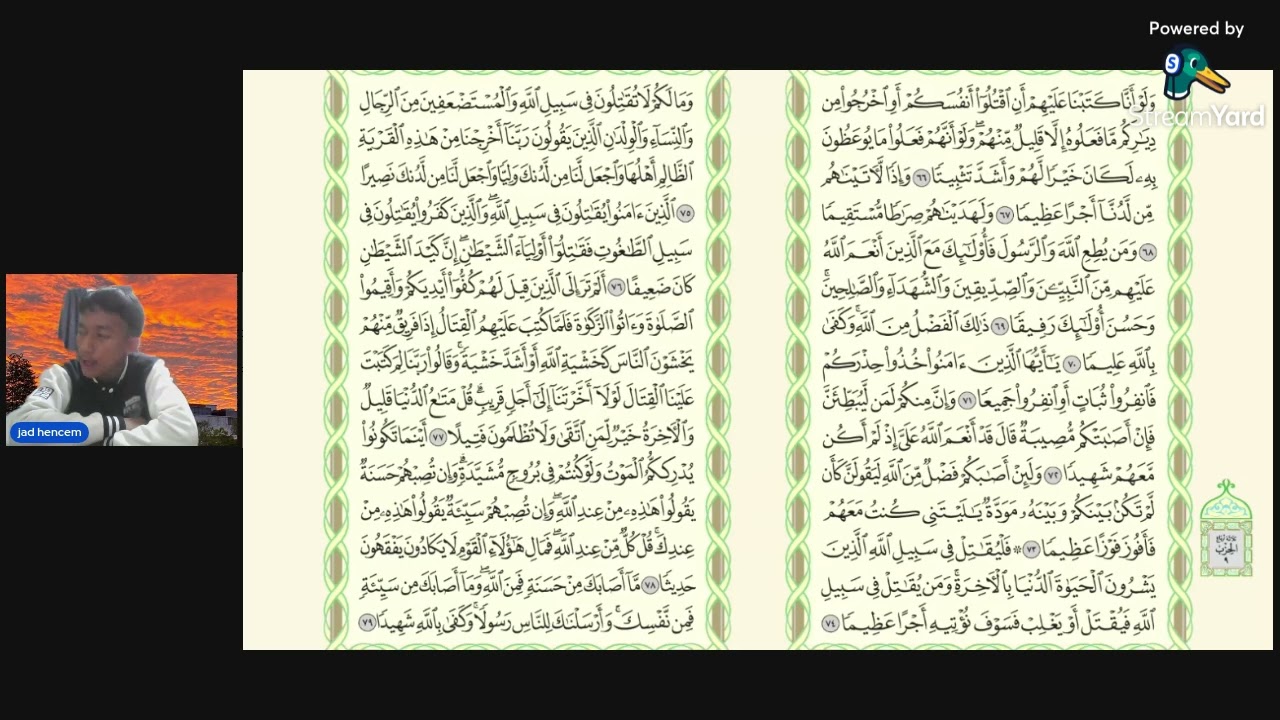 Powered by
StreamYard
وَلَوْ أَنَّا كَتَبْنَا عَلَيْهِمْ أَنِ ٱقْتُلُوٓا۟ أَنفُسَكُمْ أَوِ ٱخْرُجُوا۟ مِن
دِيَـٰرِكُم مَّا فَعَلُوهُ إِلَّا قَلِيلٌ مِّنْهُمْ ۖ وَلَوْ أَنَّهُمْ فَعَلُوا۟ مَا يُوعَظُونَ
بِهِۦ لَكَانَ خَيْرًا لَّهُمْ وَأَشَدَّ تَثْبِيتًا ٦٦ وَإِذًا لَّـَٔاتَيْنَـٰهُم
مِّن لَّدُنَّآ أَجْرًا عَظِيمًا ٦٧ وَلَهَدَيْنَـٰهُمْ صِرَٰطًا مُّسْتَقِيمًا
٦٨ وَمَن يُطِعِ ٱللَّهَ وَٱلرَّسُولَ فَأُو۟لَـٰٓئِكَ مَعَ ٱلَّذِينَ أَنْعَمَ ٱللَّهُ
عَلَيْهِم مِّنَ ٱلنَّبِيِّـۧنَ وَٱلصِّدِّيقِينَ وَٱلشُّهَدَآءِ وَٱلصَّـٰلِحِينَ ۚ
وَحَسُنَ أُو۟لَـٰٓئِكَ رَفِيقًا ٦٩ ذَٰلِكَ ٱلْفَضْلُ مِنَ ٱللَّهِ ۚ وَكَفَىٰ
بِٱللَّهِ عَلِيمًا ٧٠ يَـٰٓأَيُّهَا ٱلَّذِينَ ءَامَنُوا۟ خُذُوا۟ حِذْرَكُمْ
فَٱنفِرُوا۟ ثُبَاتٍ أَوِ ٱنفِرُوا۟ جَمِيعًا ٧١ وَإِنَّ مِنكُمْ لَمَن لَّيُبَطِّئَنَّ
فَإِنْ أَصَـٰبَتْكُم مُّصِيبَةٌ قَالَ قَدْ أَنْعَمَ ٱللَّهُ عَلَىَّ إِذْ لَمْ أَكُن
مَّعَهُمْ شَهِيدًا ٧٢ وَلَئِنْ أَصَـٰبَكُمْ فَضْلٌ مِّنَ ٱللَّهِ لَيَقُولَنَّ كَأَن
لَّمْ تَكُنۢ بَيْنَكُمْ وَبَيْنَهُۥ مَوَدَّةٌ يَـٰلَيْتَنِى كُنتُ مَعَهُمْ
فَأَفُوزَ فَوْزًا عَظِيمًا ٧٣ ۞ فَلْيُقَـٰتِلْ فِى سَبِيلِ ٱللَّهِ ٱلَّذِينَ
يَشْرُونَ ٱلْحَيَوٰةَ ٱلدُّنْيَا بِٱلْـَٔاخِرَةِ ۚ وَمَن يُقَـٰتِلْ فِى سَبِيلِ
ٱللَّهِ فَيُقْتَلْ أَوْ يَغْلِبْ فَسَوْفَ نُؤْتِيهِ أَجْرًا عَظِيمًا ٧٤
وَمَا لَكُمْ لَا تُقَـٰتِلُونَ فِى سَبِيلِ ٱللَّهِ وَٱلْمُسْتَضْعَفِينَ مِنَ ٱلرِّجَالِ
وَٱلنِّسَآءِ وَٱلْوِلْدَٰنِ ٱلَّذِينَ يَقُولُونَ رَبَّنَآ أَخْرِجْنَا مِنْ هَـٰذِهِ ٱلْقَرْيَةِ
ٱلظَّالِمِ أَهْلُهَا وَٱجْعَل لَّنَا مِن لَّدُنكَ وَلِيًّا وَٱجْعَل لَّنَا مِن لَّدُنكَ نَصِيرًا
٧٥ ٱلَّذِينَ ءَامَنُوا۟ يُقَـٰتِلُونَ فِى سَبِيلِ ٱللَّهِ ۖ وَٱلَّذِينَ كَفَرُوا۟ يُقَـٰتِلُونَ فِى
سَبِيلِ ٱلطَّـٰغُوتِ فَقَـٰتِلُوٓا۟ أَوْلِيَآءَ ٱلشَّيْطَـٰنِ ۖ إِنَّ كَيْدَ ٱلشَّيْطَـٰنِ
كَانَ ضَعِيفًا ٧٦ أَلَمْ تَرَ إِلَى ٱلَّذِينَ قِيلَ لَهُمْ كُفُّوٓا۟ أَيْدِيَكُمْ وَأَقِيمُوا۟
ٱلصَّلَوٰةَ وَءَاتُوا۟ ٱلزَّكَوٰةَ فَلَمَّا كُتِبَ عَلَيْهِمُ ٱلْقِتَالُ إِذَا فَرِيقٌ مِّنْهُمْ
يَخْشَوْنَ ٱلنَّاسَ كَخَشْيَةِ ٱللَّهِ أَوْ أَشَدَّ خَشْيَةً ۚ وَقَالُوا۟ رَبَّنَا لِمَ كَتَبْتَ
عَلَيْنَا ٱلْقِتَالَ لَوْلَآ أَخَّرْتَنَآ إِلَىٰٓ أَجَلٍ قَرِيبٍ ۗ قُلْ مَتَـٰعُ ٱلدُّنْيَا قَلِيلٌ
وَٱلْـَٔاخِرَةُ خَيْرٌ لِّمَنِ ٱتَّقَىٰ وَلَا تُظْلَمُونَ فَتِيلًا ٧٧ أَيْنَمَا تَكُونُوا۟
يُدْرِككُّمُ ٱلْمَوْتُ وَلَوْ كُنتُمْ فِى بُرُوجٍ مُّشَيَّدَةٍ ۗ وَإِن تُصِبْهُمْ حَسَنَةٌ
يَقُولُوا۟ هَـٰذِهِۦ مِنْ عِندِ ٱللَّهِ ۖ وَإِن تُصِبْهُمْ سَيِّئَةٌ يَقُولُوا۟ هَـٰذِهِۦ مِنْ
عِندِكَ ۚ قُلْ كُلٌّ مِّنْ عِندِ ٱللَّهِ ۖ فَمَالِ هَـٰٓؤُلَآءِ ٱلْقَوْمِ لَا يَكَادُونَ يَفْقَهُونَ
حَدِيثًا ٧٨ مَّآ أَصَابَكَ مِنْ حَسَنَةٍ فَمِنَ ٱللَّهِ ۖ وَمَآ أَصَابَكَ مِن سَيِّئَةٍ
فَمِن نَّفْسِكَ ۚ وَأَرْسَلْنَـٰكَ لِلنَّاسِ رَسُولًا ۚ وَكَفَىٰ بِٱللَّهِ شَهِيدًا ٧٩
الحزب
jad hencem